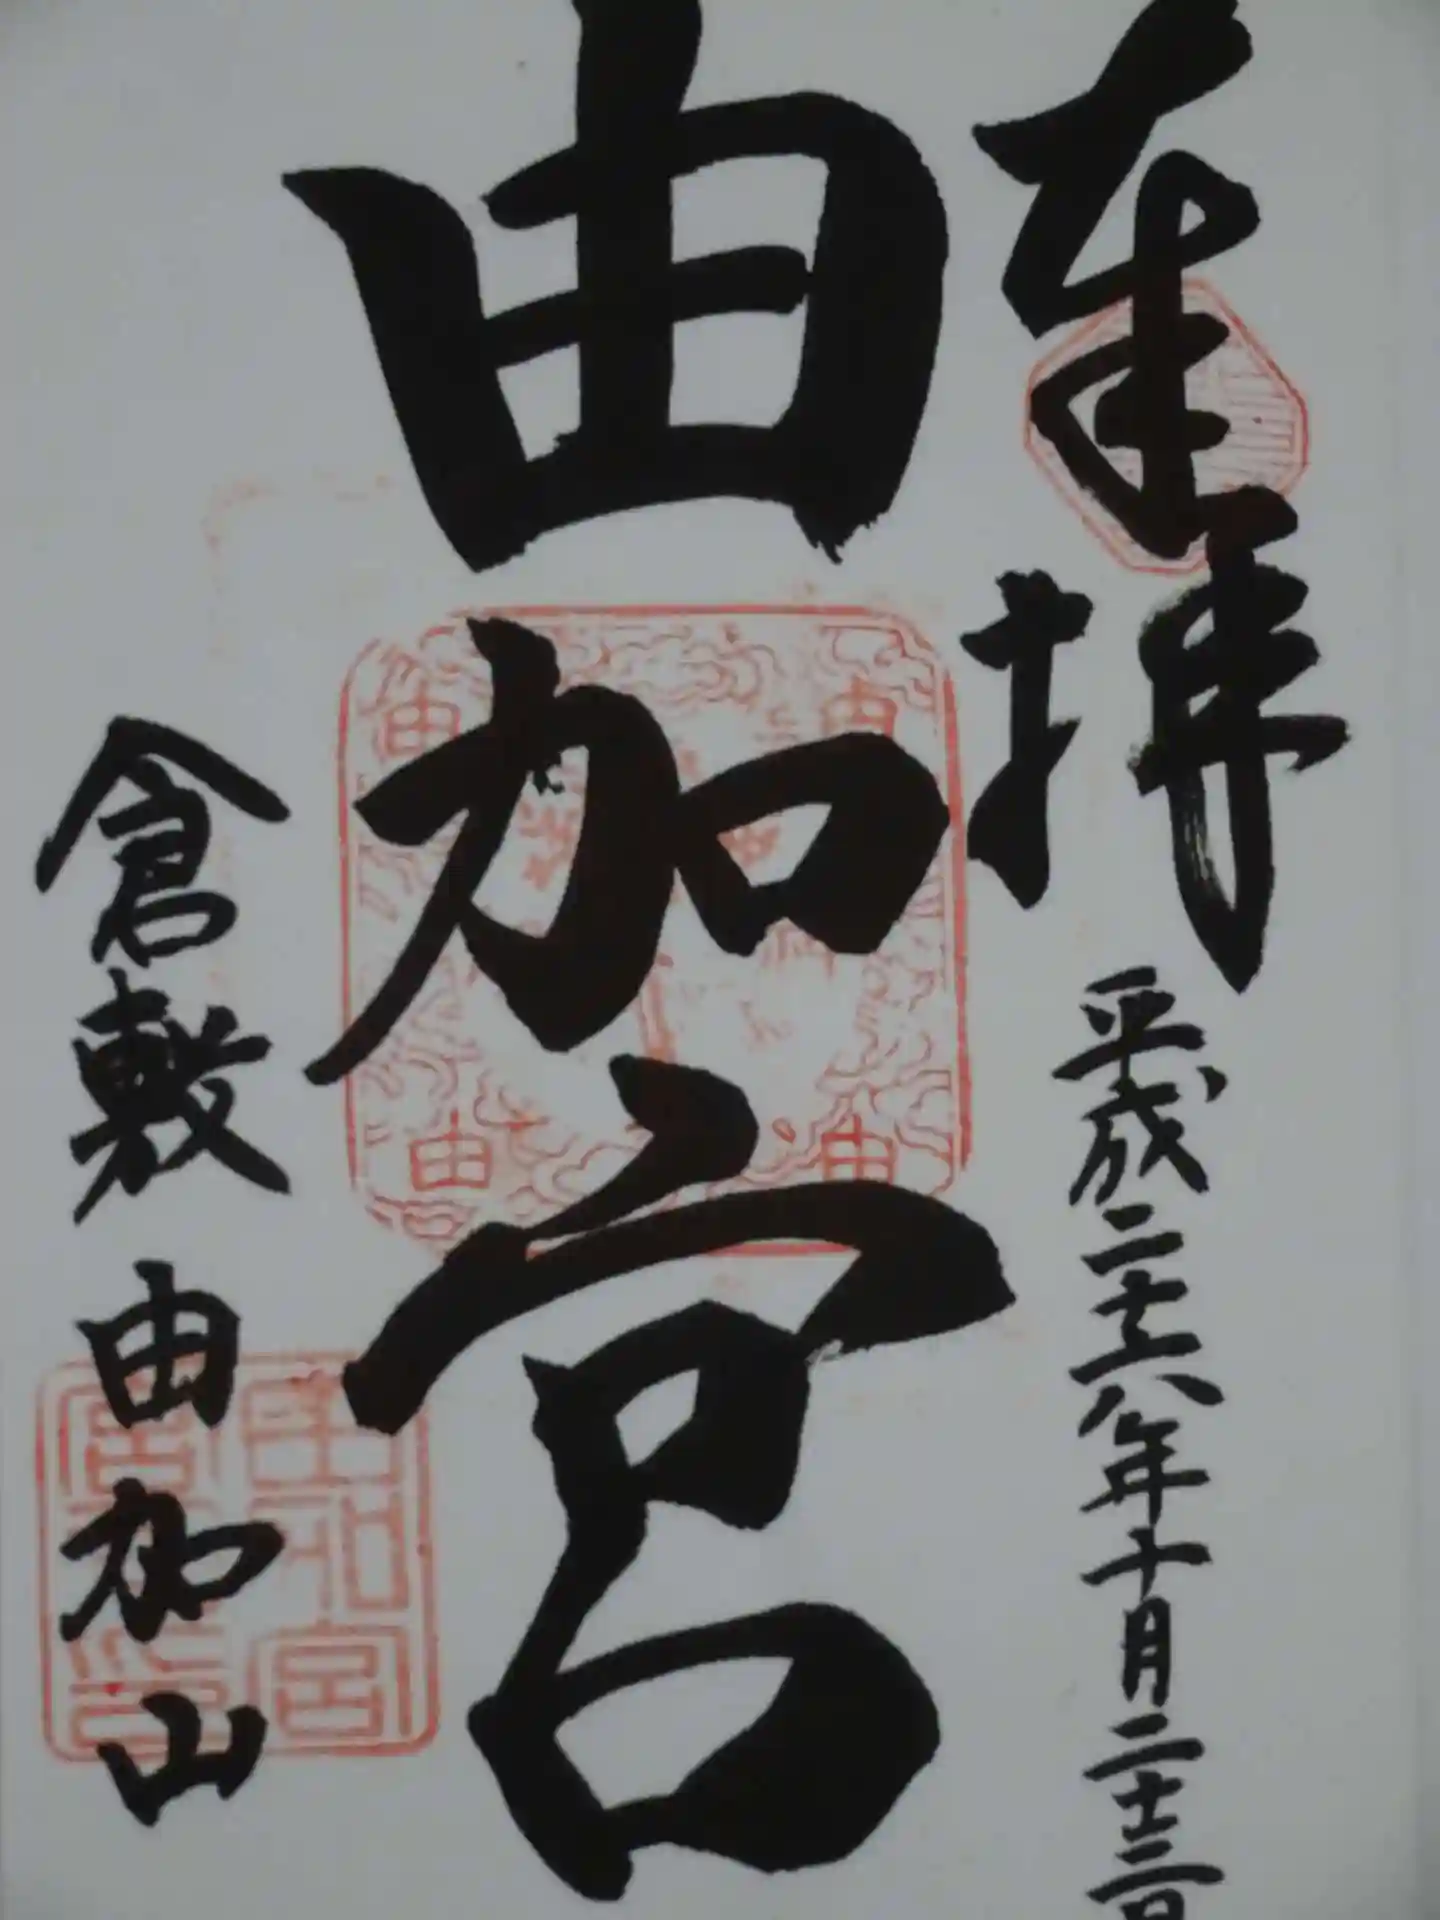 奉拝
平成二十六年十月二十三日
由加宮
倉敷 由加山
由
由
由
由